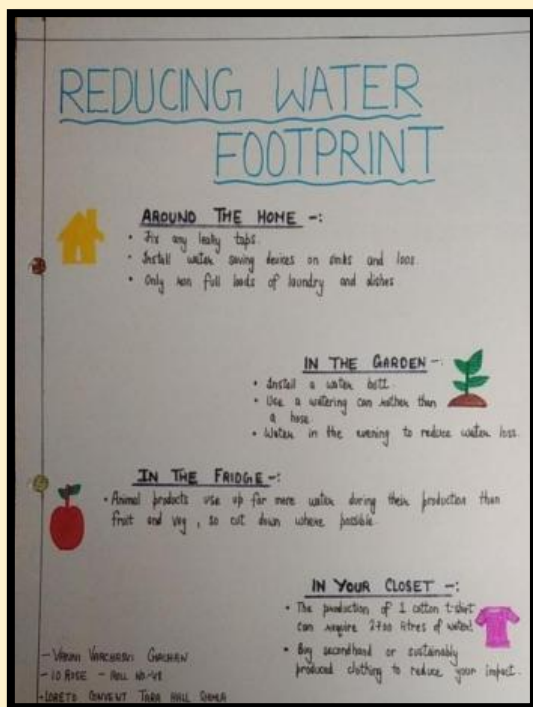 REDUCING WATER
FOOTPRINT
AROUND THE HOME -:
• Fix any leaky taps.
• Install water saving devices on sinks and loos.
• Only run full loads of laundry and dishes
IN THE GARDEN -:
• Install a water butt.
• Use a watering can rather than
a hose.
• Water in the evening to reduce water loss.
IN THE FRIDGE -:
• Animal products use up far more water during their production than
fruit and veg, so cut down where possible.
IN YOUR CLOSET -:
• The production of 1 cotton t-shirt
can require 2700 litres of water!
• Buy secondhand or sustainably
produced clothing to reduce your impact.
- VANNI
- 10 ROSE - ROLL NO.-
- LORETO CONVENT TARA HALL SHIMLA